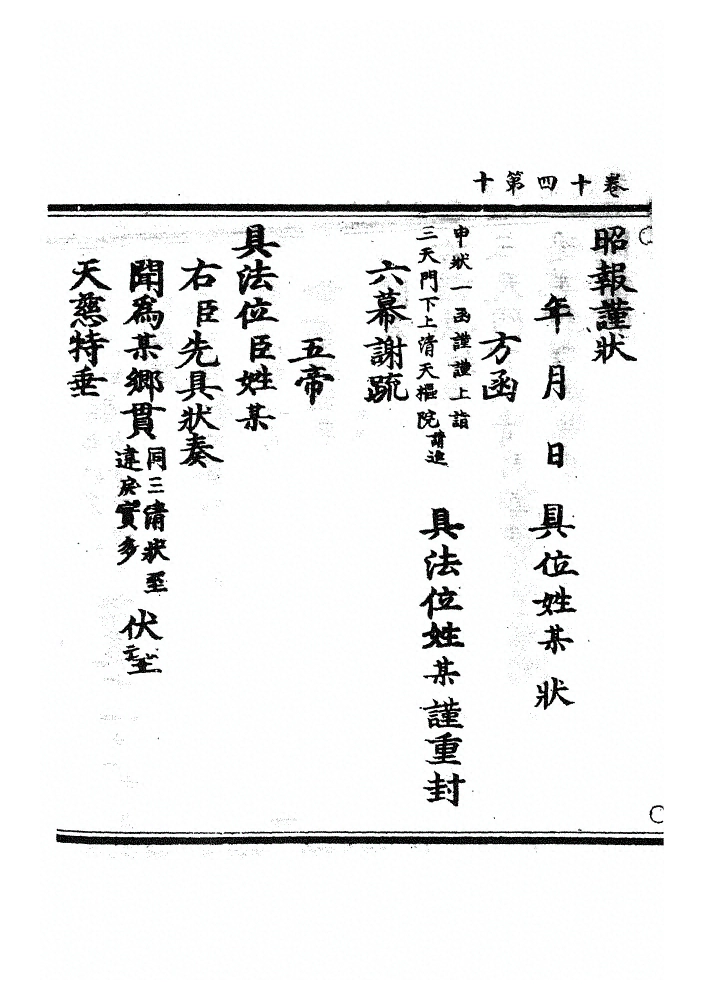 十第四十卷
昭報謹狀
年 月 日 具位姓某 狀
方函
申狀一函謹謹上詣
三天門下上清天樞院 請進 具法位姓某謹重封
六幕謝䟽
五帝
具法位臣姓某
右臣先具狀奏
聞為某鄉貫 同三清狀至
違戾實多 伏望
天慈特垂